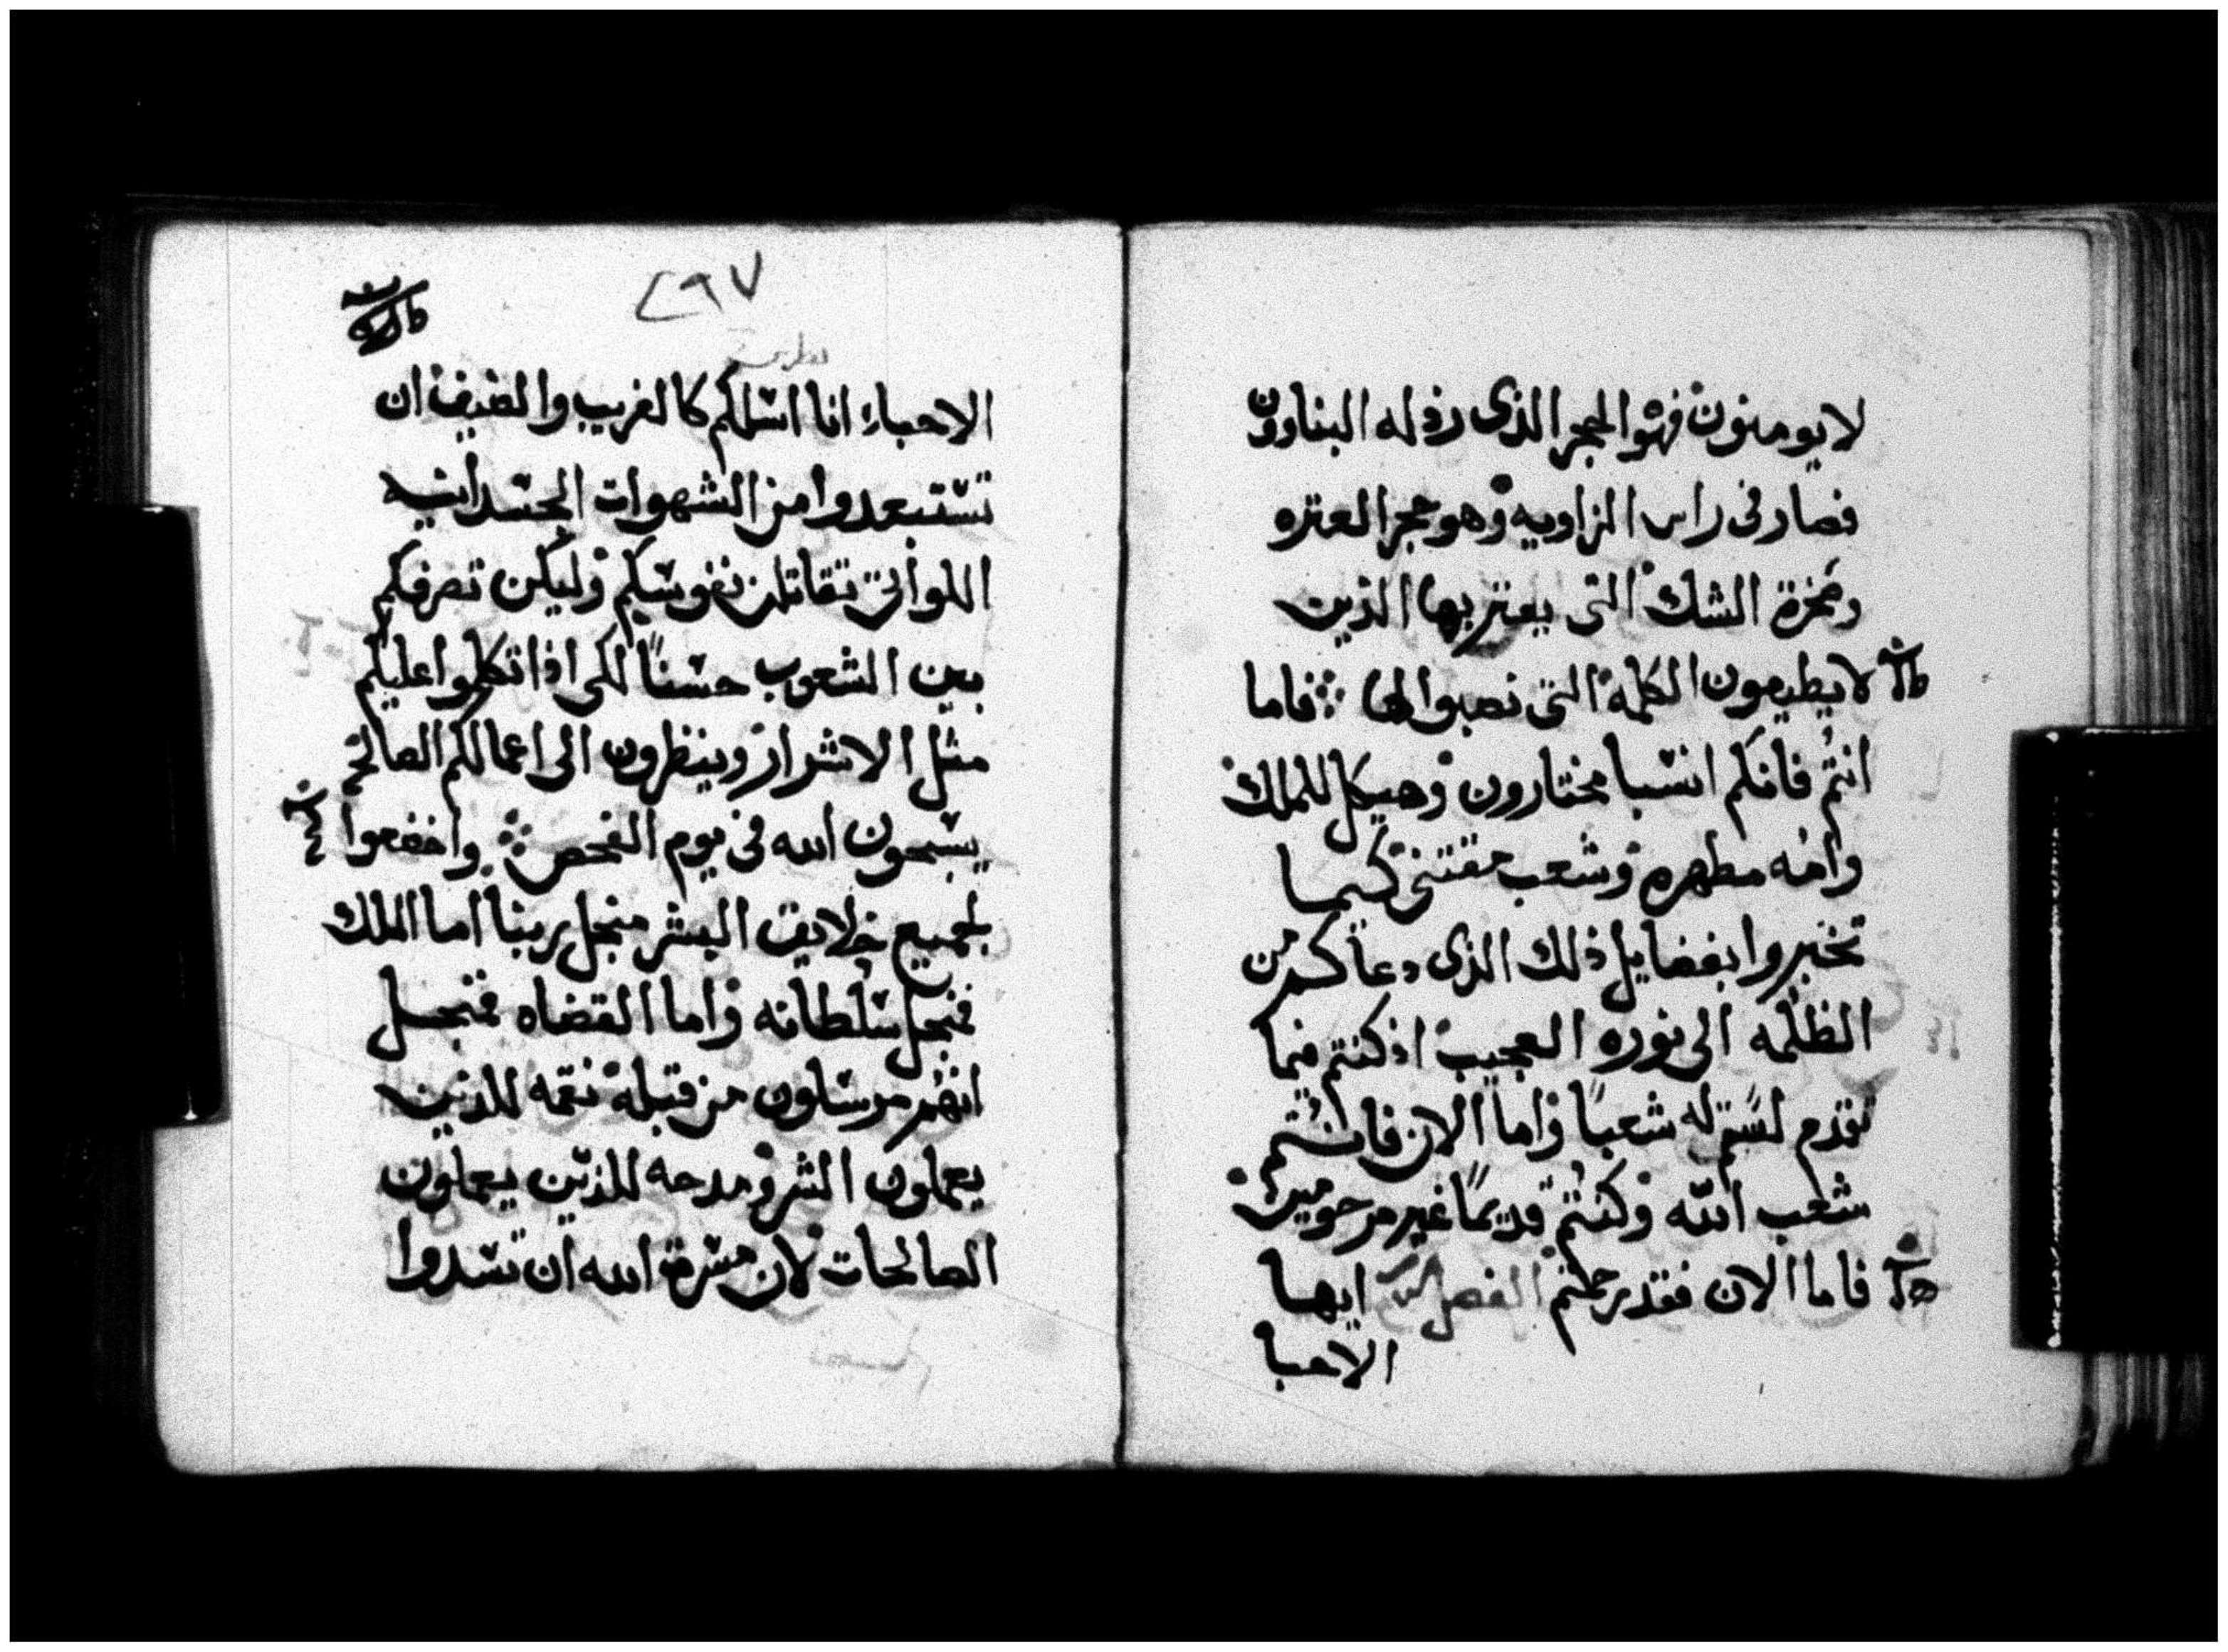 لا يومنون فهو الحجر الذى رذله البناوون
فصار فى راس الزاويه وهو حجر العثره
وصخرة الشك التى يعتر بها الذين
لا يطيعون الكلمة التى نصبوا لها ⁘ فاما
انتم فانكم انسبا مختارون وهيكل للملك
وامه مطهره وشعب مقتنى كيما
تخبروا بفضايل ذلك الذى دعاكم من
الظلمه الى نوره العجيب اذ كنتم فيما
تقدم لستم له شعبًا واما الان فانتم
شعب الله وكنتم قديمًا غير مرحومين
فاما الان فقد رحمتم الفصل ايها
الاحبا
٢٩٧
الاحباء انا اسلكم كالغريب والضيف ان
تستبعدوا من الشهوات الجسدانيه
اللواتى تقاتلن نفوسكم وليكن تصرفكم
بين الشعوب حسنًا لكى اذا تكلموا عليكم
مثل الاشرار وينظرون الى اعمالكم الصالحه
يسبحون الله فى يوم الفحص ⁘ واخضعوا
لجميع خلايق البشر منجل ربنا اما الملك
فنجل سلطانه واما القضاه فنجل
انهم مرسلون من قبله نقمه للذين
يعملون الشر ومدحه للذين يعملون
الصالحات لان مسرة الله ان تسدوا